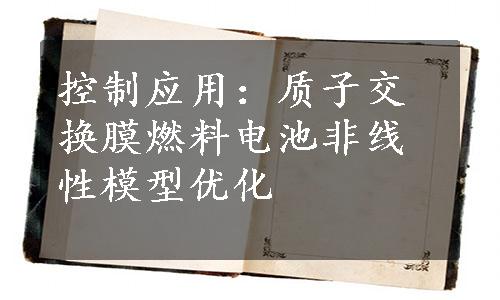 控制应用：质子交
换膜燃料电池非线
性模型优化